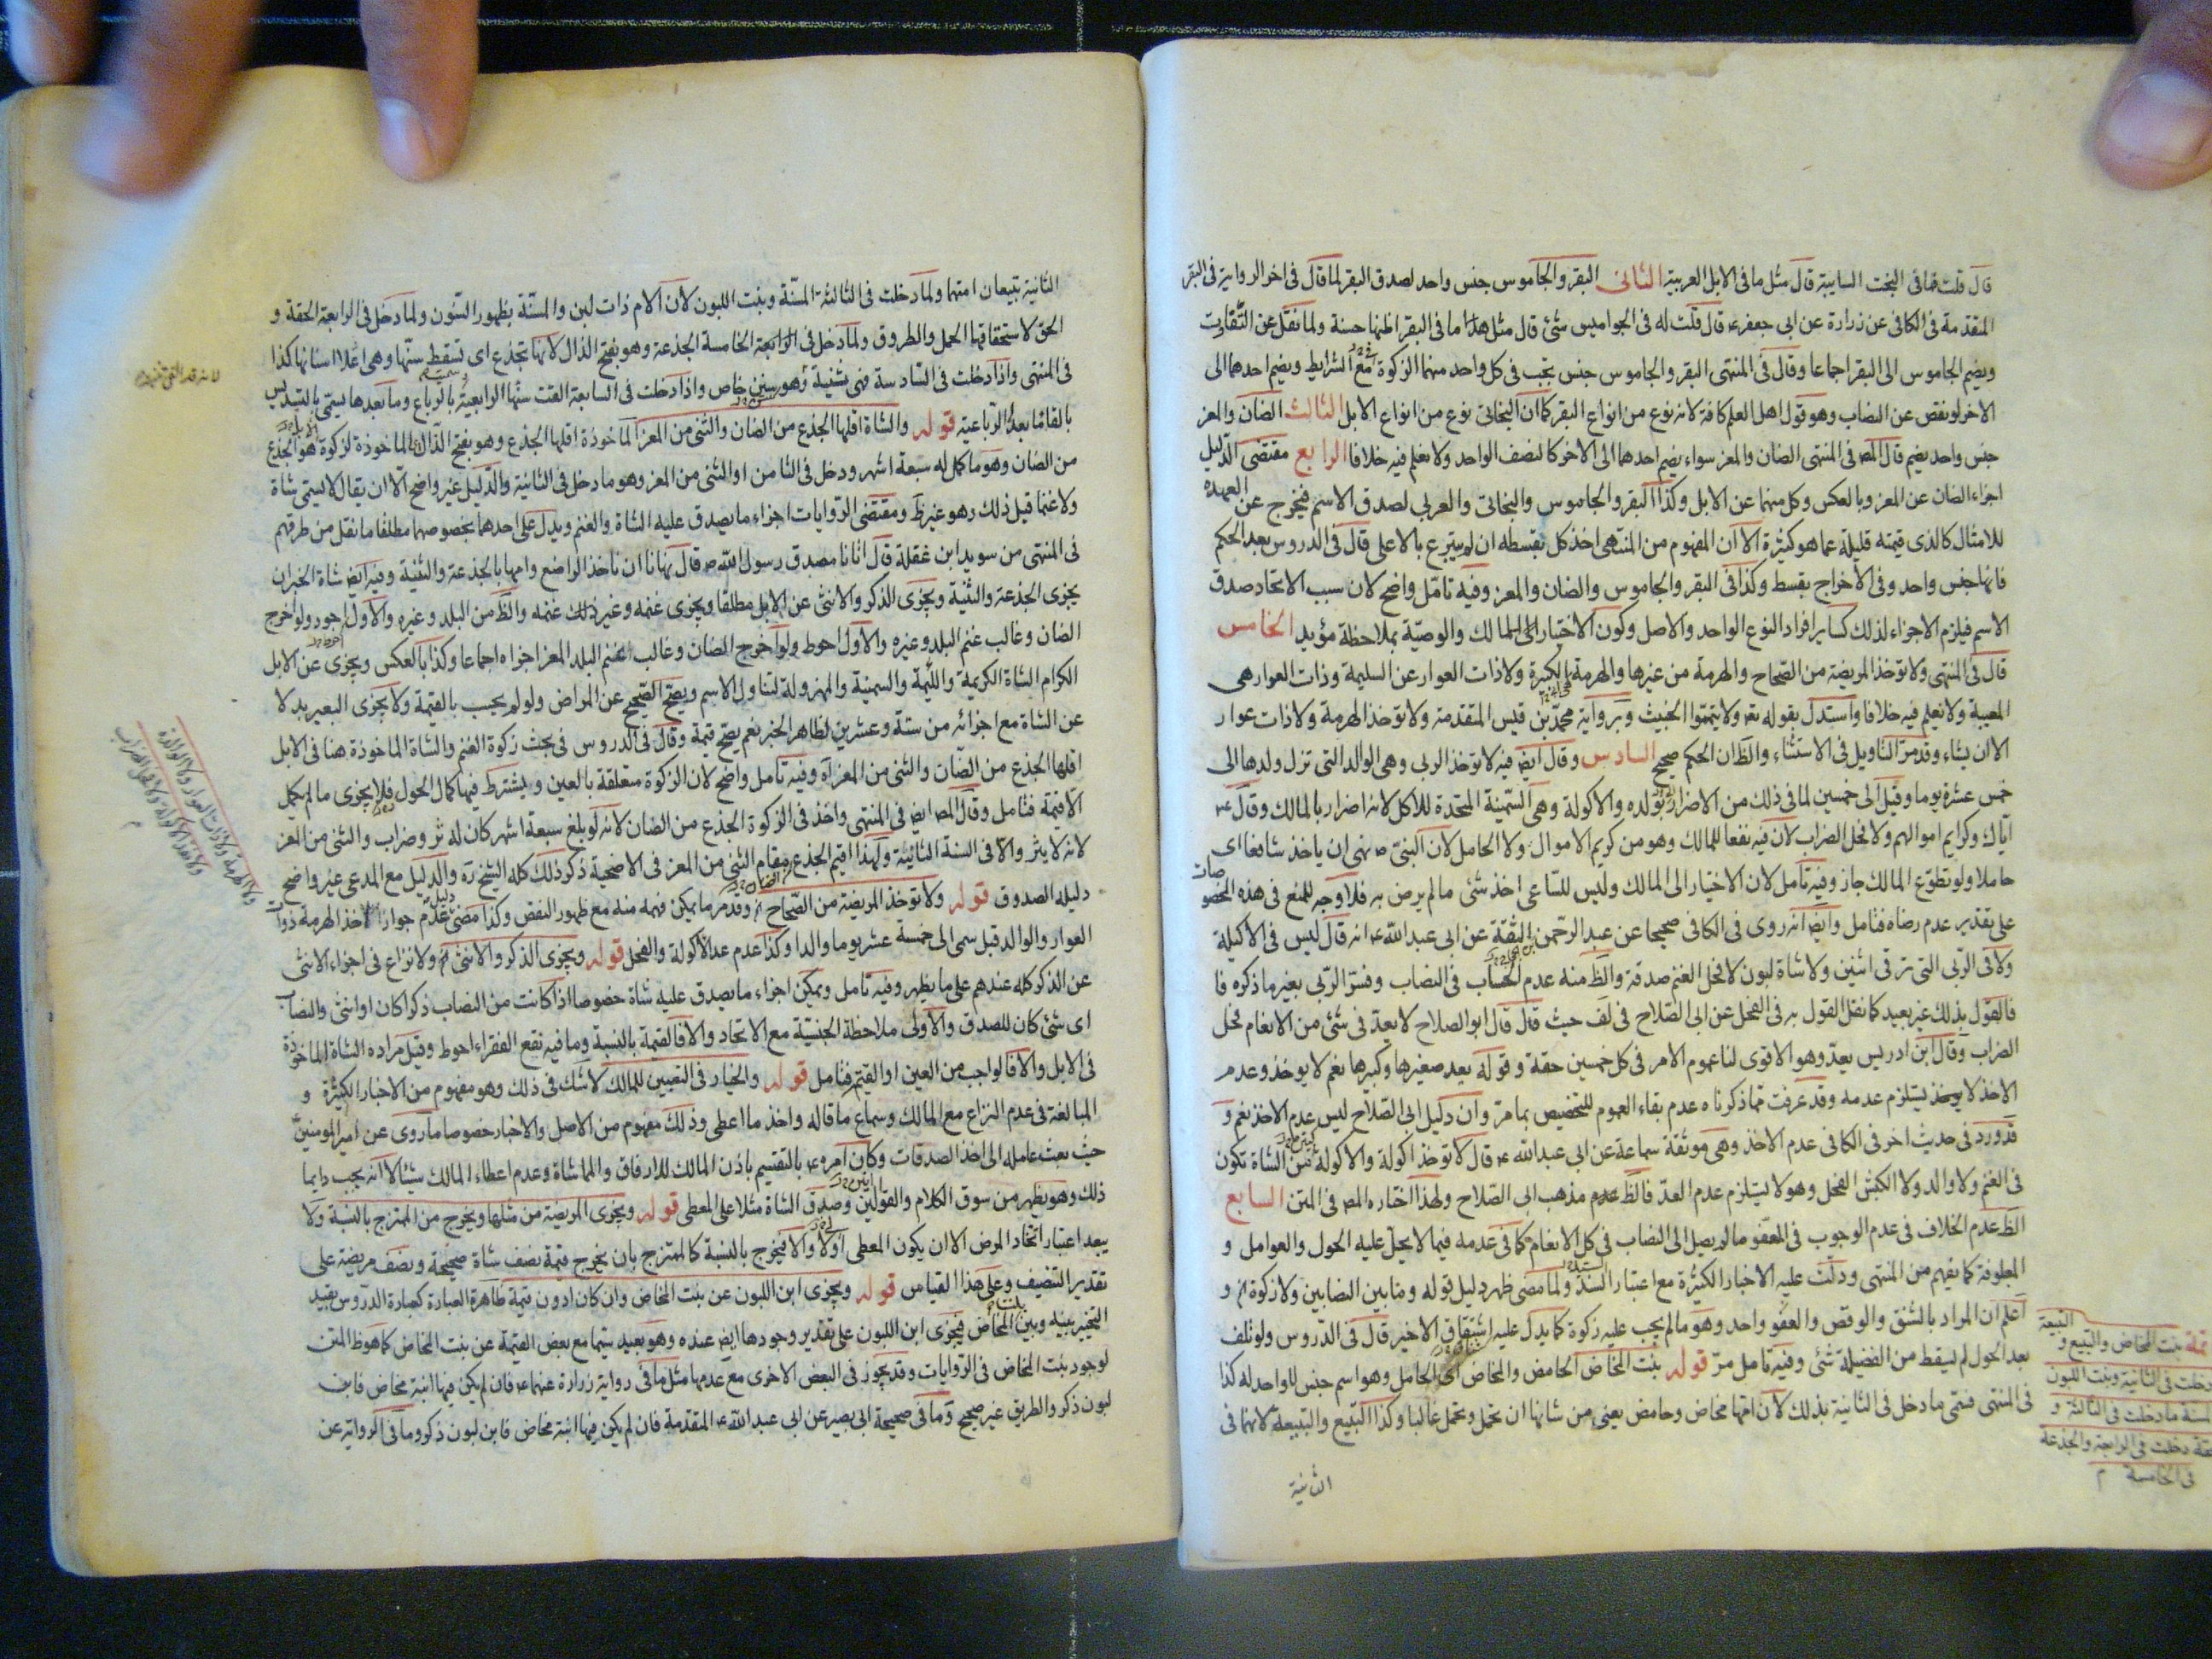 قال قلت فما فى البخت السايبة قال مثل ما فى الابل العربية الثانى البقر والجاموس جنس واحد لصدق البقر لما قال فى اخر الرواية فى البقر
المتقدمة فى الكافى عن زرارة عن ابى جعفر ع قال قلت له فى الجواميس شئ قال مثل هذا ما فى البقر اظنها حسنة ولما نقل عن الثقات
ويضم الجاموس الى البقر اجماعا وقال فى المنتهى البقر والجاموس جنس تجب فى كل واحد منهما الزكوة مع الشرايط ويضم احدهما الى
الاخر لو نقص عن النصاب وهو قول اهل العلم كافة لانه نوع من انواع البقر كما ان البخاتى نوع من انواع الابل الثالث الضان والمعز
جنس واحد يضم قال المص فى المنتهى الضان والمعز سواء يضم احدهما الى الاخر كالنصف الواحد ولا نعلم فيه خلافا الرابع مقتضى الدليل
اجزاء الضان عن المعز وبالعكس وكل منهما عن الابل وكذا البقر والجاموس والبخاتى والعربى لصدق الاسم فيخرج عن العهدة
للامتثال كالذى قيمته قليلة عما هو كثيرة الا ان المفهوم من المنتهى اخذ كل بقسطه ان لم يتبرع بالاعلى قال فى الدروس بعد الحكم
فانها جنس واحد وفى الاخراج بقسط وكذا فى البقر والجاموس والضان والمعز وفيه تامل واضح لان سبب الاتحاد صدق
الاسم فيلزم الاجزاء لذلك كساير افراد النوع الواحد والاصل وكون الاختيار الى المالك والوصية بملاحظة مؤيد الخامس
قال فى المنتهى ولا توخذ المريضة من الصحاح والهرمة من غيرها والهرمة الكبيرة ولا ذات العوار عن السليمة وذات العوار هى
المعيبة ولا نعلم فيه خلافا واستدل بقوله تع ولا تيمموا الخبيث وبرواية محمد بن قيس المتقدمة ولا توخذ الهرمة ولا ذات عوار
الا ان يشاء وقد مر التاويل فى الاستثناء والظ ان الحكم صحيح السادس وقال ايض فيه لا توخذ الربى وهى الوالد التى تزل ولدها الى
خمس عشرة يوما وقيل الى خمسين لما فى ذلك من الاضرار بولده والاكولة وهى السمينة المتخذة للاكل لانه اضرار بالمالك وقال ع
اياك وكرايم اموالهم ولا فحل الضراب لان فيه نفعا للمالك وهو من كريم الاموال ولا الحامل لان النبى ص نهى ان ياخذ شافعا اى
حاملا ولو تطوع المالك جاز وفيه تامل لان الاختيار الى المالك وليس للساعى اخذ شئ ما لم يرض به فلا وجه للمنع فى هذه الخصوصات
على تقدير عدم رضاه فتامل وايض انه روى فى الكافى صحيحا عن عبد الرحمن الثقة عن ابى عبد الله ع انه قال ليس فى الاكيلة
ولا فى الربى التى تربى اثنين ولا شاة لبون لا فحل الغنم صدقة والظ منه عدم الحساب فى النصاب وفسر الربى بغير ما ذكره فا
فالقول بذلك غير بعيد كما نقل القول به فى الفحل عن ابى الصلاح فى لف حيث قال قال ابو الصلاح لا يعد فى شئ من الانعام فحل
الضراب وقال ابن ادريس يعد وهو الاقوى لنا عموم الامر فى كل خمسين حقة وقوله يعد صغيرها وكبيرها نعم لا يوخذ وعدم
الاخذ لا يوخذ يستلزم عدمه وقد عرفت مما ذكرناه عدم بقاء العموم للتخصيص بما مر وان دليل ابى الصلاح ليس عدم الاخذ نعم و
قد ورد فى حديث اخر فى الكافى عدم الاخذ وهى موثقة سماعة عن ابى عبد الله ع قال لا توخذ اكولة والاكولة من الشاة تكون
فى الغنم ولا والد ولا الكبش الفحل وهو لا يستلزم عدم العد فالظ عدم مذهب ابى الصلاح ولهذا اختاره المص فى المتن السابع
الظ عدم الخلاف فى عدم الوجوب فى المعفو ما لم يصل الى النصاب فى كل الانعام كما فى عدمه فيما لا يحل عليه الحول والعوامل و
المعلوفة كما يفهم من المنتهى ودلت عليه الاخبار الكثيرة مع اعتبار السند ولما مضى ظهر دليل قوله وما بين النصابين ولا زكوة اه و
اعلم ان المراد بالشنق والوقص والعفو واحد وهو ما لم يجب عليه زكوة كما يدل عليه اشتقاق الاخير قال فى الدروس ولو تلف
بعد الحول لم يسقط من الفضيلة شئ وفيه تامل مر قوله بنت المخاض الحامض والمخاض اى الحامل وهو اسم جنس لا واحد له كذا
فى المنتهى فسمى ما دخل فى الثانية بذلك لان امها مخاض وحامض يعنى من شانها ان تحمل وتحمل غالبا وكذا التبيع والتبيعة لانهما فى
الثانية
التبيعة
بنت المخاض والتبيع و
دخلت فى الثانية وبنت اللبون
المسنة ما دخلت فى الثالثة و
دخلت فى الرابعة والجذعة
فى الخامسة م
الثانية يتبعان امتهما ولما دخلت فى الثالثة المسنة وبنت اللبون لان الام ذات لبن والمسنة يظهور السنون ولما دخل فى الرابعة الحقة و
الحق لاستحقاقها الحمل والطروق ولما دخل فى الرابعة الخامسة الجذعة وهو بفتح الذال لانها تجذع اى تسقط سنها وهى اعلا اسنانها كذا
فى المنتهى واذا دخلت فى السادسة فهى بثنية وهو سنين خاص واذا دخلت فى السابعة القت سنها الرباعية بالرباع وما بعدها يسمى بالسديس
بالقائها بعد الرباعية قوله والشاة اقلها الجذع من الضان والثنى من المعز الماخوذة اقلها الجذع وهو بفتح الذال الماخوذة لزكوة هو الجذع
من الضان وهو ما كمل له سبعة اشهر ودخل فى الثامن او الثنى من المعز وهو ما دخل فى الثانية والدليل غير واضح الا ان يقال لا يسمى شاة
ولا غنما قبل ذلك وهو غير ظ ومقتضى الروايات اجزاء ما يصدق عليه الشاة والغنم ويدل على احدهما بخصوصها مطلقا ما نقل من طرقهم
فى المنتهى من سويد ابن غفلة قال اتانا مصدق رسول الله ص قال نهانا ان ناخذ الراضع وامرنا بالجذعة والثنية وفيه ايض شاة الجبران
يجزى الجذعة والثنية ويجزى الذكر والانثى عن الابل مطلقا ويجزى غنمه وغير ذلك غنمه والظ من البلد وغيره والاول اجود ولو اخرج
الضان وغالب غنم البلد وغيره والاول احوط ولو اخرج الضان وغالب الغنم البلد المعز اجزاه اجماعا وكذا بالعكس ويجزى عن الابل
الكرام الشاة الكريمة واللئيمة والسمينة والمهزولة لتناول الاسم ويصح الصحيح عن المراض ولو لم يجب بالقيمة ولا يجزى البعير بدلا
عن الشاة مع اجزائه من ستة وعشرين لظاهر الخبر نعم يصح قيمة وقال فى الدروس فى بحث زكوة الغنم والشاة الماخوذة هنا فى الابل
اقلها الجذع من الضان والثنى من المعز اه وفيه تامل واضح لان الزكوة متعلقة بالعين ويشترط فيها كمال الحول فلا يجزى ما لم يكمل
الا قيمة فتامل وقال المص ايض فى المنتهى واخذ فى الزكوة الجذع من الضان لانه لو بلغ سبعة اشهر كان له نز وضراب والثنى من المعز
لانه لا ينز والا فى السنة الثانية ولهذا اقيم الجذع مقام الثنى من المعز فى الاضحية ذكر ذلك كله الشيخ ره والدليل مع المدعى غير واضح
دليله الصدوق قوله ولا توخذ المريضة من الصحاح اه وقد مر ما يمكن فهمه منه مع ظهور النقص وكذا مضى عدم جواز اخذ الهرمة ذوات
العوار والوالد قيل سمى الى خمسة عشر يوما والدا وكذا عدم عد الاكولة والفحل قوله ويجزى الذكر والانثى اه ولا نزاع فى اجزاء الانثى
عن الذكر كله عندهم على ما يظهر وفيه تامل ويمكن اجزاء ما يصدق عليه شاة خصوصا اذا كانت من النصاب ذكرا كان او انثى والنصاب
اى شئ كان للصدق والاولى ملاحظة الجنسية مع الاتحاد والا فالقيمة بالنسبة وما فيه نفع الفقراء احوط وقيل مراده الشاة الماخوذة
فى الابل والا فالواجب من العين او القيم فتامل قوله والخيار فى التعيين للمالك لا شك فى ذلك وهو مفهوم من الاخبار الكثيرة و
المبالغة فى عدم النزاع مع المالك وسماع ما قاله واخذ ما اعطى وذلك مفهوم من الاصل والاخبار خصوصا ما روى عن امير المومنين
حيث بعث عامله الى اخذ الصدقات وكان امره ع بالتقسيم باذن المالك للارفاق والمماشاة وعدم اعطاء المالك شيئا لا انه يجب دايما
ذلك وهو يظهر من سوق الكلام والقولين وصدق الشاة مثلا على المعطى قوله ويجزى المريضة من مثلها ويخرج من الممتزج بالنسبة ولا
يبعد اعتبار اتحاد المرض الا ان يكون المعطى اولا والا فيخرج بالنسبة كالممتزج بان يخرج قيمة نصف شاة صحيحة ونصف مريضة على
تقدير التنصيف وعلى هذا القياس قوله ويجزى ابن اللبون عن بنت المخاض وان كان ادون قيمة ظاهرة العبارة كعبارة الدروس يفيد
التخيير بينه وبين المخاض فيجزى ابن اللبون على تقدير وجودها ايض عنده وهو بعيد سيما مع بعض القيمة عن بنت المخاض كما هو ظ المتن
لوجود بنت المخاض فى الروايات وقد يجوز فى البعض الاخرى مع عدمها مثل ما فى رواية زرارة عنهما ع فان لم يكن فيها ابنة مخاض فابن
لبون ذكر والطريق غير صحيح وما فى صحيحة ابى بصير عن ابى عبد الله ع المتقدمة فان لم يكن فيها ابنة مخاض فابن لبون ذكر وما فى الرواية عن
ولا الهرمة ولا ذات العوار ولا الوالدة
ولا تعد الاكولة ولا فحل الضراب
م